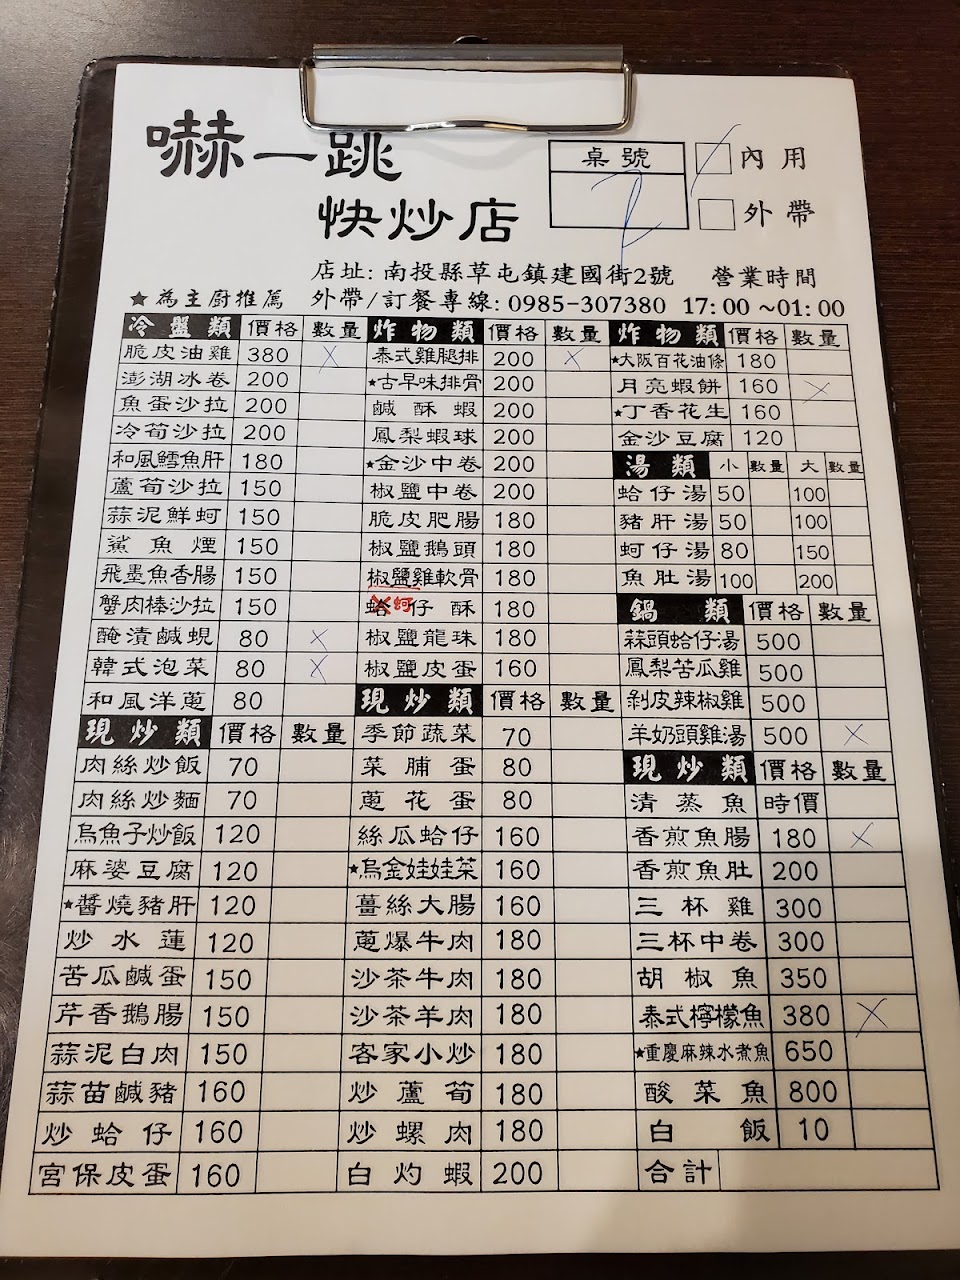 嚇一跳
快炒店
桌號
2
內用
外帶
店址: 南投縣草屯鎮建國街2號 營業時間
★為主廚推薦 外帶/訂餐專線: 0985-307380 17:00~01:00
冷盤類 價格 數量
脆皮油雞 380 X
澎湖冰卷 200
魚蛋沙拉 200
冷筍沙拉 200
和風鱈魚肝 180
蘆筍沙拉 150
蒜泥鮮蚵 150
鯊魚煙 150
飛墨魚香腸 150
蟹肉棒沙拉 150
醃漬鹹蜆 80 X
韓式泡菜 80 X
和風洋蔥 80
現炒類 價格 數量
肉絲炒飯 70
肉絲炒麵 70
烏魚子炒飯 120
麻婆豆腐 120
★醬燒豬肝 120
炒水蓮 120
苦瓜鹹蛋 150
芹香鵝腸 150
蒜泥白肉 150
蒜苗鹹豬 160
炒蛤仔 160
宮保皮蛋 160
炸物類 價格 數量
泰式雞腿排 200 X
★古早味排骨 200
鹹酥蝦 200
鳳梨蝦球 200
★金沙中卷 200
椒鹽中卷 200
脆皮肥腸 180
椒鹽鵝頭 180
椒鹽雞軟骨 180
蛤蚵仔酥 180
椒鹽龍珠 180
椒鹽皮蛋 160
現炒類 價格 數量
季節蔬菜 70
菜脯蛋 80
蔥花蛋 80
絲瓜蛤仔 160
★烏金娃娃菜 160
薑絲大腸 160
蔥爆牛肉 180
沙茶牛肉 180
沙茶羊肉 180
客家小炒 180
炒蘆筍 180
炒螺肉 180
白灼蝦 200
炸物類 價格 數量
★大阪百花油條 180
月亮蝦餅 160 X
★丁香花生 160
金沙豆腐 120
湯類 小 數量 大 數量
蛤仔湯 50 100
豬肝湯 50 100
蚵仔湯 80 150
魚肚湯 100 200
鍋類 價格 數量
蒜頭蛤仔湯 500
鳳梨苦瓜雞 500
剝皮辣椒雞 500
羊奶頭雞湯 500 X
現炒類 價格 數量
清蒸魚 時價
香煎魚腸 180 X
香煎魚肚 200
三杯雞 300
三杯中卷 300
胡椒魚 350
泰式檸檬魚 380 X
★重慶麻辣水煮魚 650
酸菜魚 800
白飯 10
合計